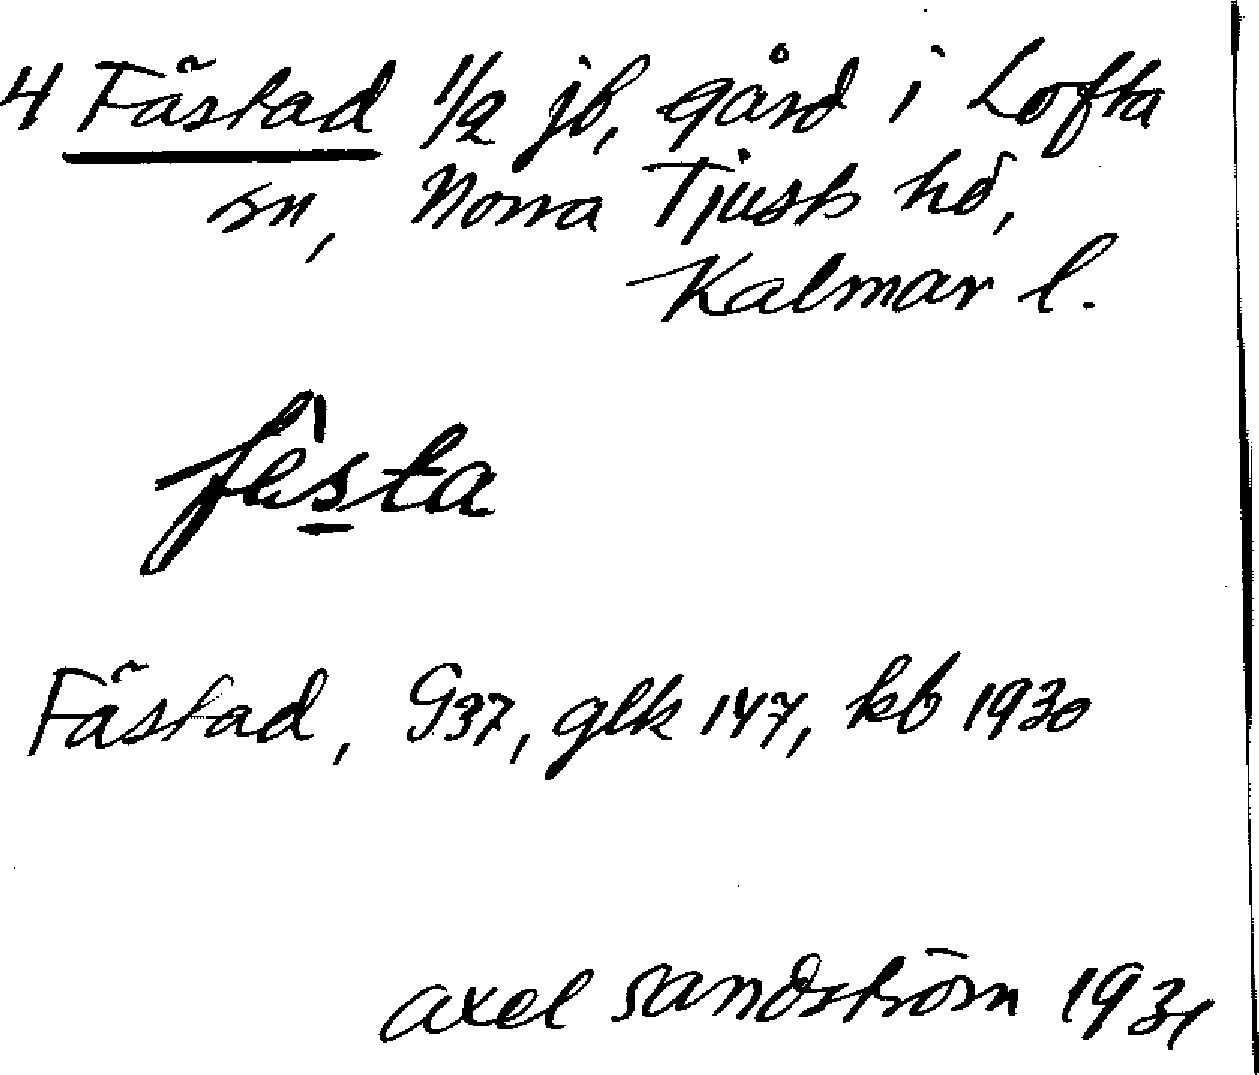 4 Fästad 1/2 jb, gård i Lofta
sn, Norra Tjusts hd,
Kalmar l.
fèsta
Fästad, G37, glk 147, kb 1930
axel sandström 1931